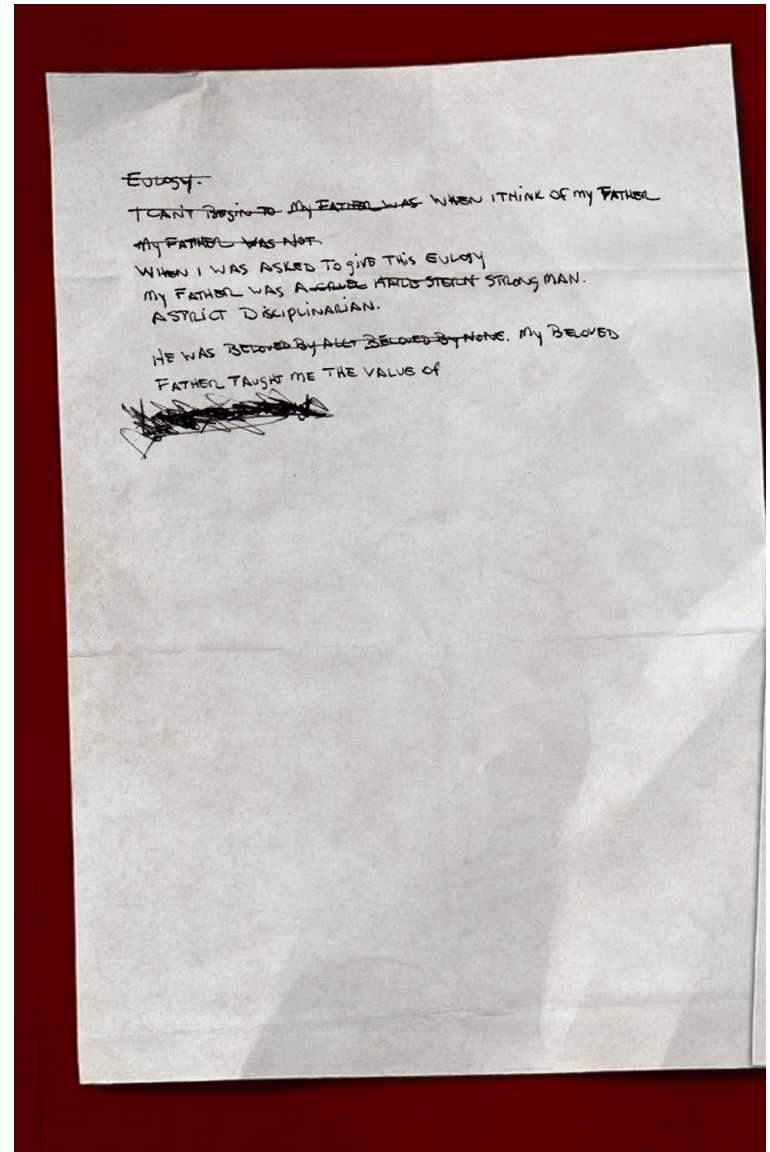 EULOGY.
I CAN'T BEGIN TO MY FATHER WAS WHEN I THINK OF MY FATHER
MY FATHER WAS NOT
WHEN I WAS ASKED TO GIVE THIS EULOGY
MY FATHER WAS A CRUEL HARD STERN STRONG MAN.
A STRICT DISCIPLINARIAN.
HE WAS BELOVED BY ALL BELOVED BY NONE. MY BELOVED
FATHER TAUGHT ME THE VALUE OF